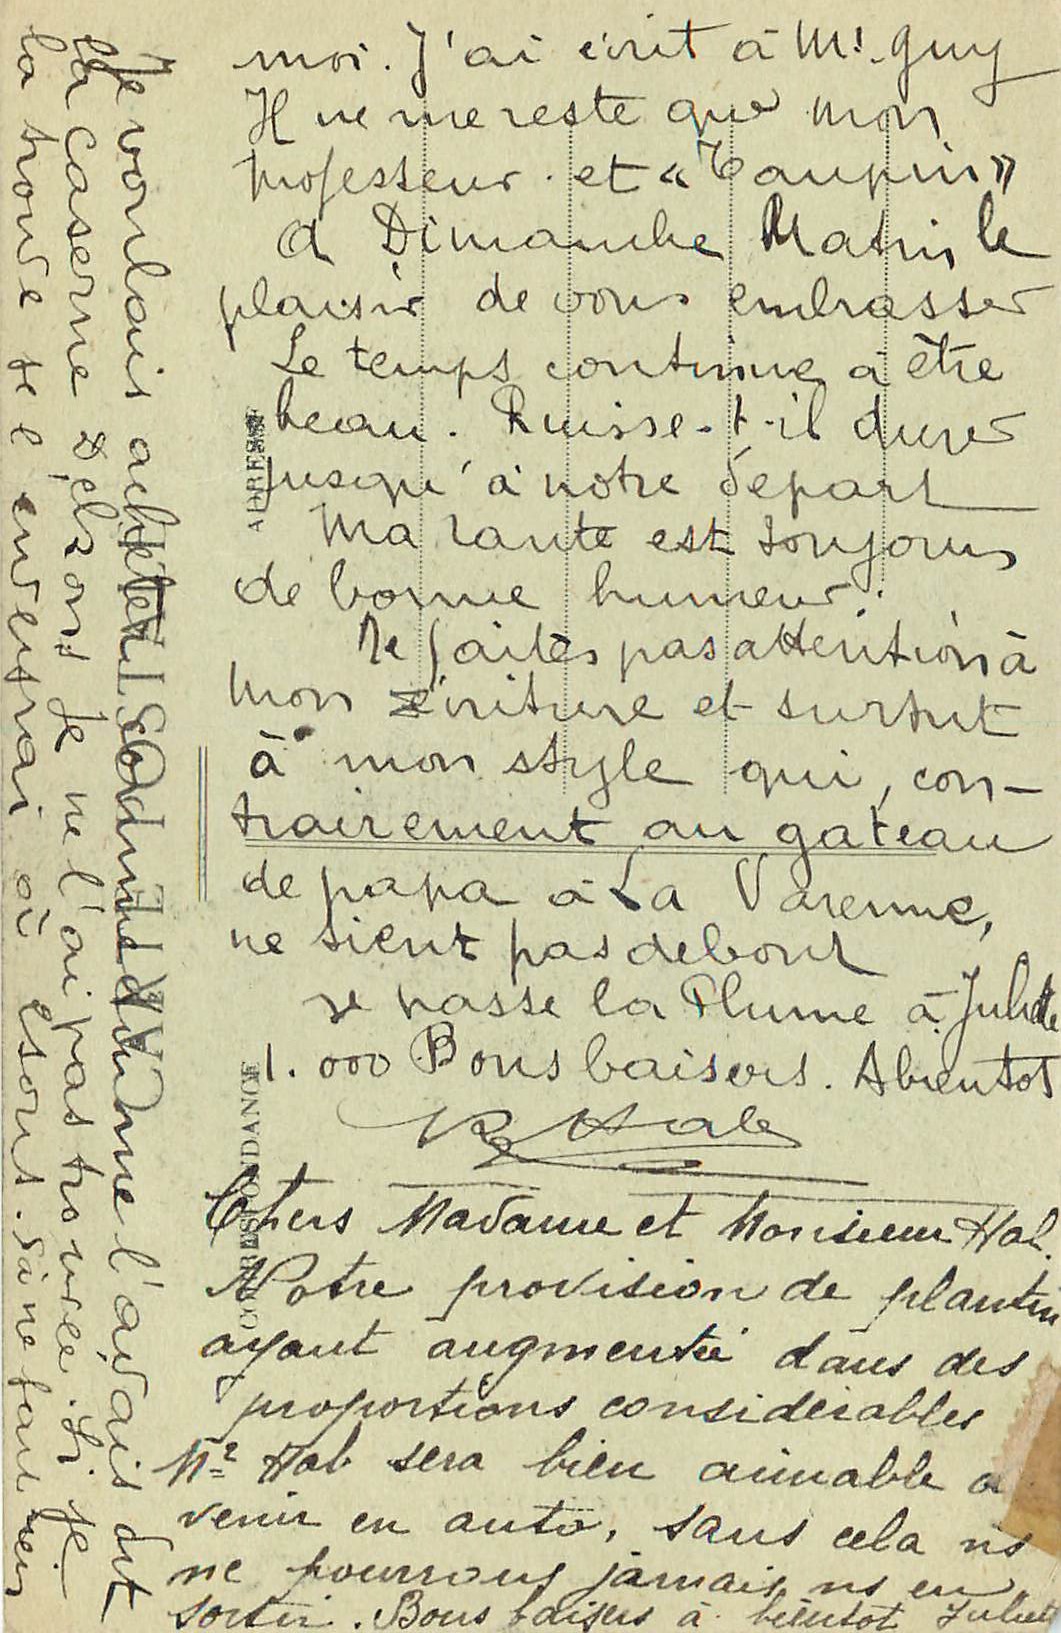 moi. J'ai écrit à Mr. Guy
Il ne me reste que mon
professeur et « Taupin »
A Dimanche Matin le
plaisir de vous embrasser
Le temps continue à être
beau. Puisse-t-il durer
jusqu'à notre départ
Ma tante est toujours
de bonne humeur.
Ne faites pas attention à
mon écriture et surtout
à mon style qui, con-
trairement au gateau
de papa à La Varenne,
ne tient pas debout
Je passe la Plume à Juliette
1.000 Bons baisers. A bientot
Hab
Chers Madame et Monsieur Hab.
Notre provision de plantin
ayant augmenté dans des
proportions considérables
Mr Hab sera bien aimable de
venir en auto, sans cela ns
ne pourrons jamais ns en
sortir. Bons baisers à bientot Juliette
Je voulais acheter comme l'avais dit
la caserne Je ne l'ai pas trouvée. Si je
la trouve je l'enverrai où ça ne fait rien
ADRESSE
CORRESPONDANCE